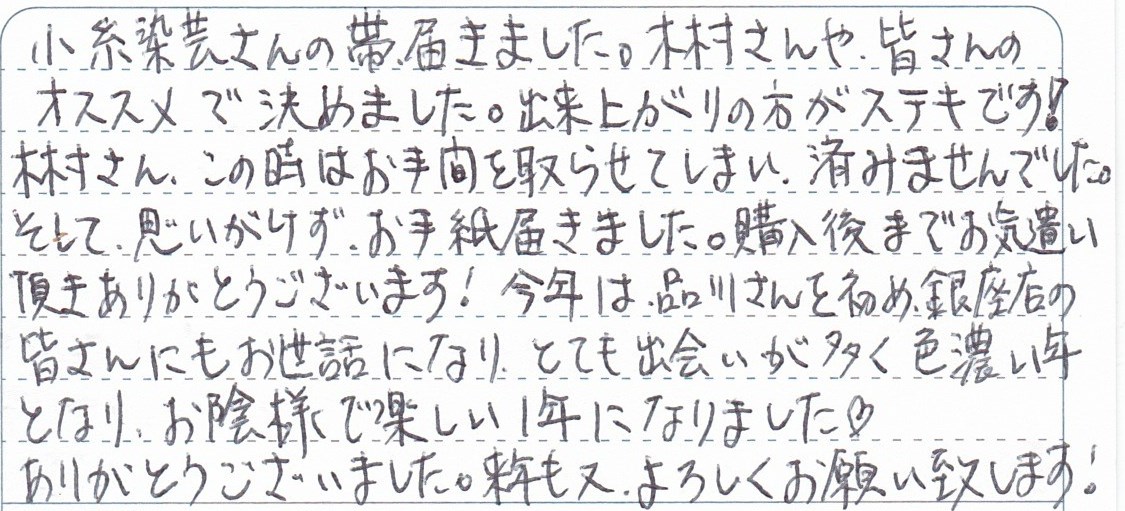 小糸染芸さんの帯、届きました。木村さんや、皆さんの
オススメで決めました。出来上がりの方がステキです!
木村さん、この時はお手間を取らせてしまい、済みませんでした。
そして、思いがけず、お手紙届きました。購入後までお気遣い
頂きありがとうございます!今年は、品川さんを初め、銀座店の
皆さんにもお世話になり、とても出会いが多く色濃い年
となり、お陰様で楽しい1年になりました♡
ありがとうございました。来年も又、よろしくお願い致します!